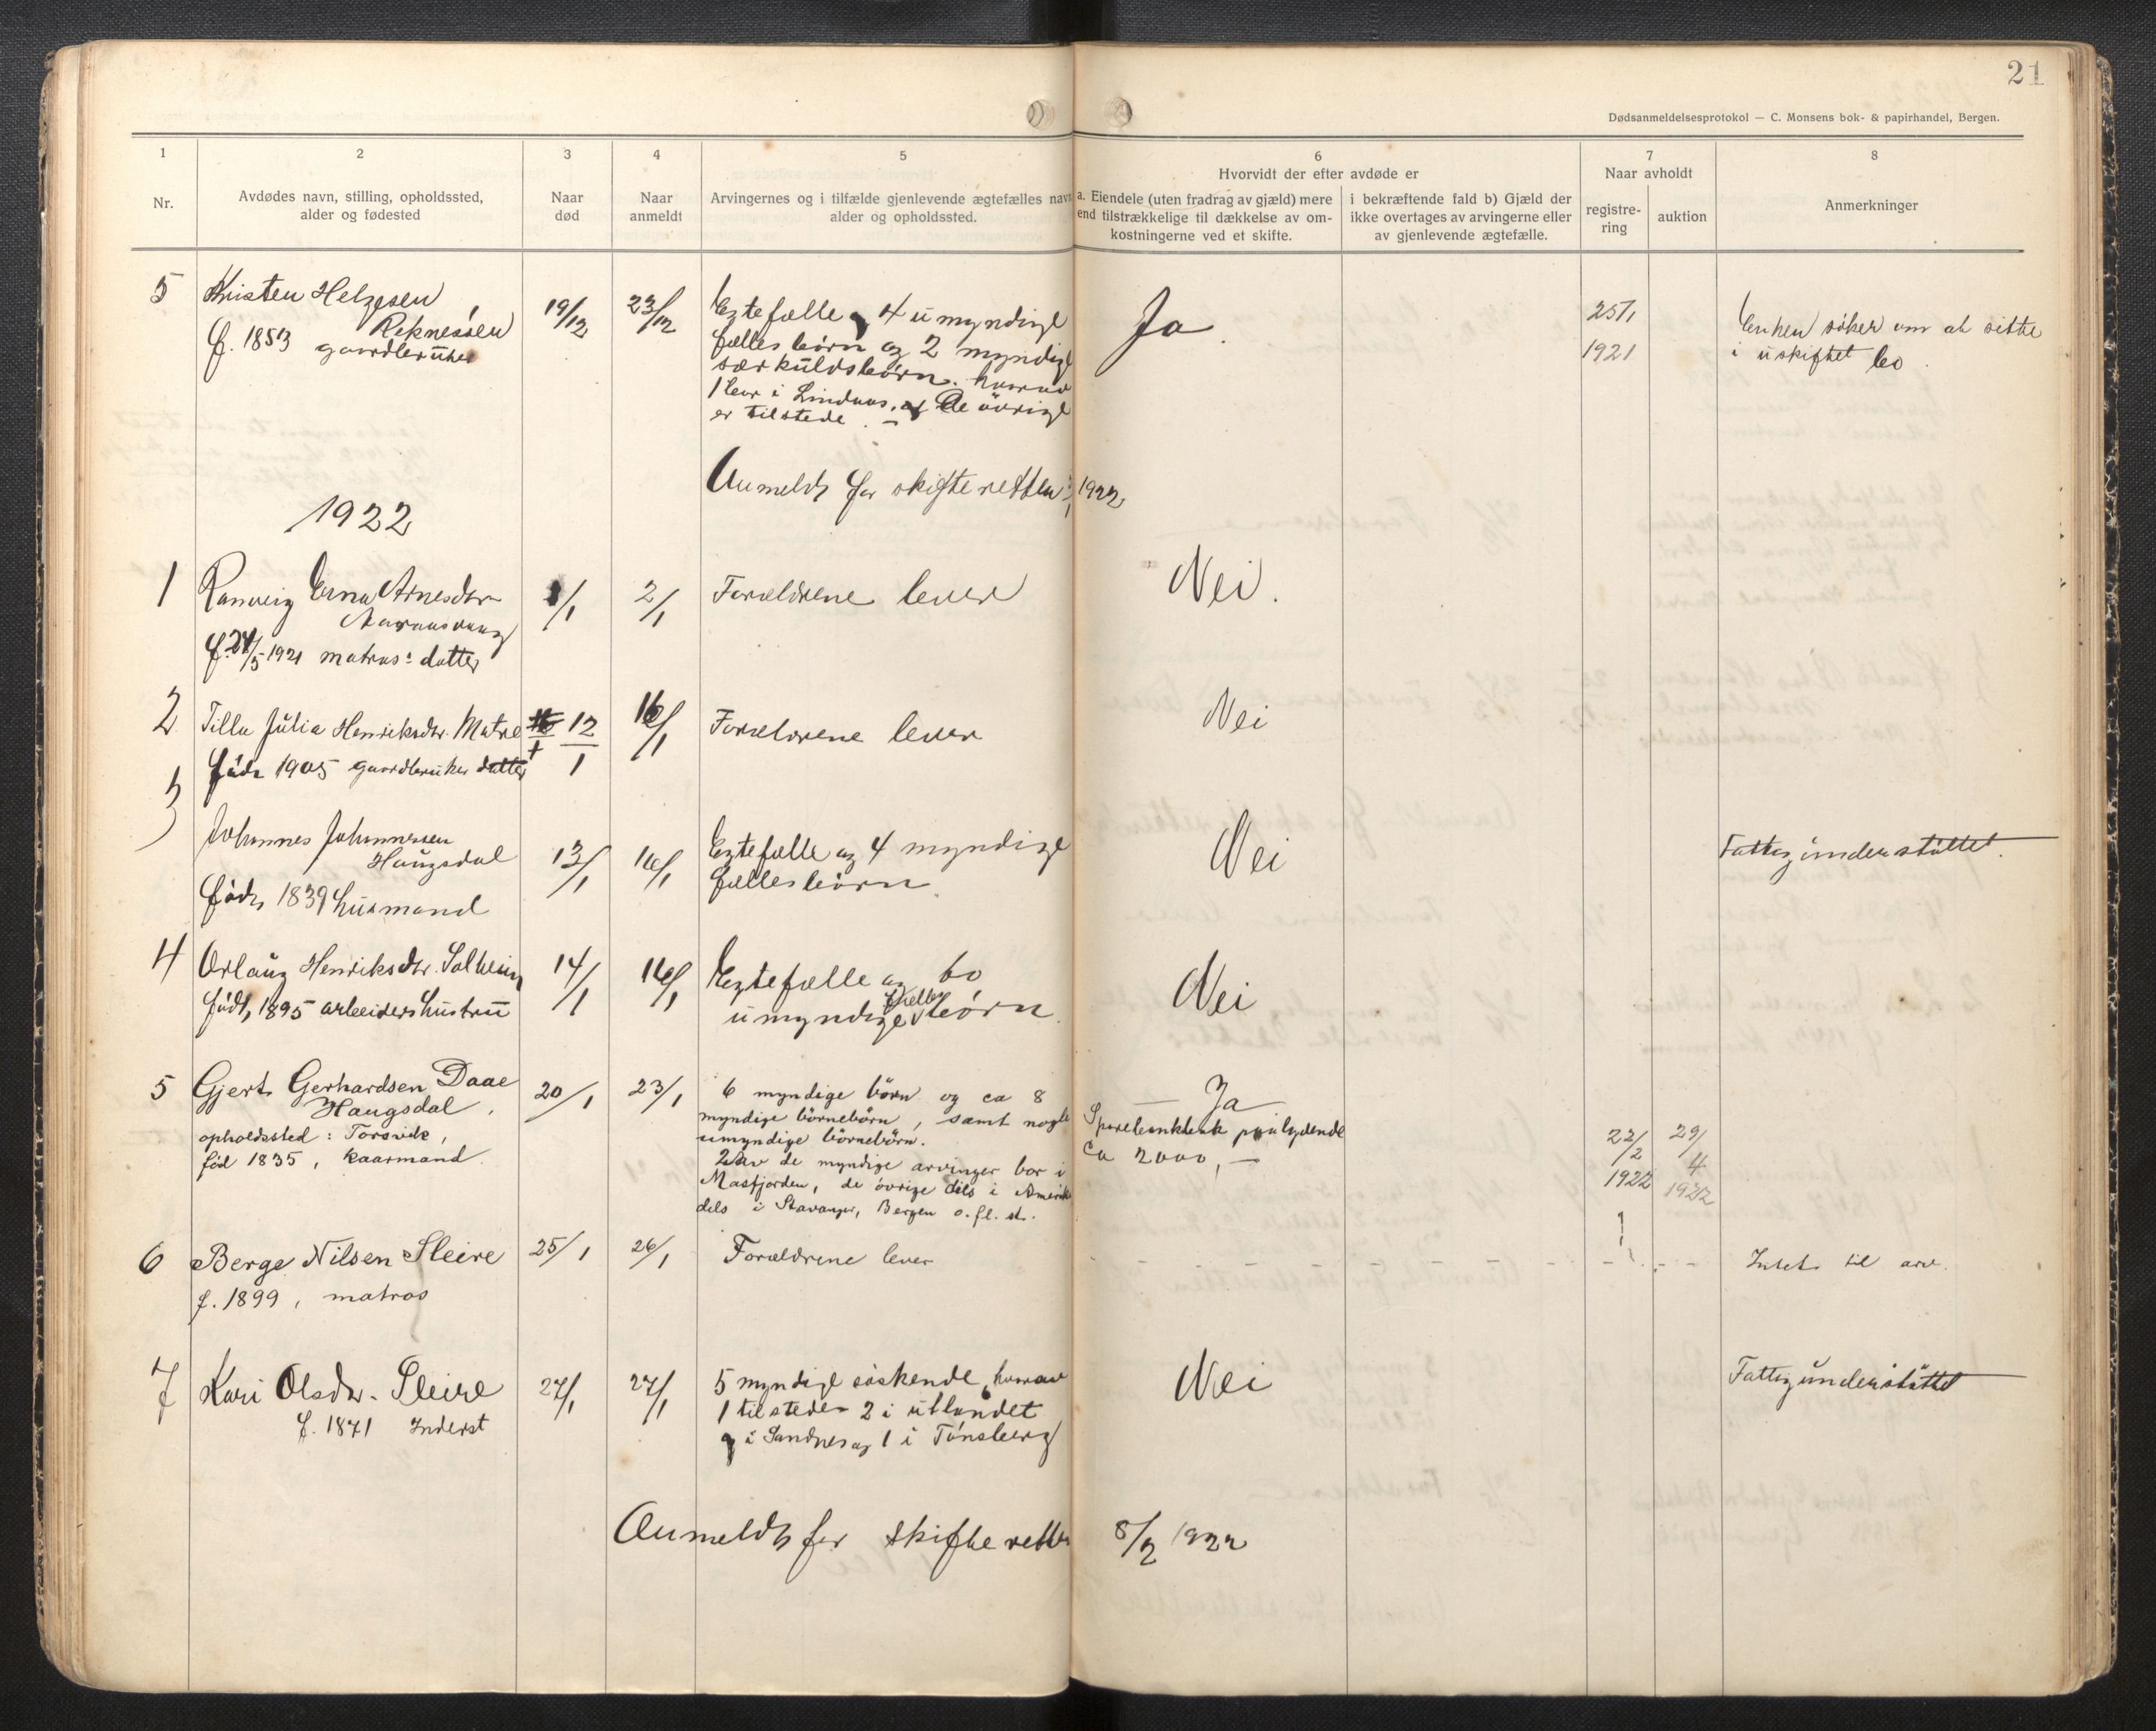 21
Dødsanmeldelsesprotokol — C. Monsens bok- & papirhandel, Bergen.
1
Nr.
2
Avdødes navn, stilling, opholdssted,
alder og fødested
3
Naar
død
4
Naar
anmeldt
5
Arvingernes og i tilfælde gjenlevende ægtefælles navn
alder og opholdssted.
6
Hvorvidt der efter avdøde er
a. Eiendele (uten fradrag av gjæld) mere
end tilstrækkelige til dækkelse av om-
kostningerne ved et skifte.
i bekræftende fald b) Gjæld der
ikke overtages av arvingerne eller
av gjenlevende ægtefælle.
7
Naar avholdt
registre-
ring
auktion
8
Anmerkninger
5
Kristen Helgesen
Reknessen
f. 1853 gaardbruker
19/12
23/12
Egtefælle og 4 umyndige
fælles börn og 2 myndige
særkuldsbörn. hvorav
1 bor i Lindaas. De övrige
er tilstede. —
Ja.
25/1
1921
Enken söker om at sitte
i uskiftet bo.
Anmeldt for skifteretten 1922
1922
1
Ranveig Erna Arnesdtr
f. 24/5 1921 matros: datter
1/1
2/1
Forældrene lever
Nei.
2
Tilla Julia Henriksdtr. Matre
född 1905 gaardbruker datter
12
1
16/1
Forældrene lever
Nei
3
Johannes Johannessen
Haugsdal
född 1839 husmand
13/1
16/1
Egtefælle og 4 myndige
fællesbörn.
Nei
Fattigunderstöttet.
4
Orlaug Henriksdtr. Solheim
född 1895 arbeiders hustru
14/1
16/1
Egtefælle og to
fælles
umyndige börn.
Nei
5
Gjert Gerhardsen Daae
Haugsdal,
opholdssted: Torsvik,
föd 1835, kaarmand.
20/1
23/1
6 myndige börn og ca 8
myndige börnebörn, samt nogle
umyndige börnebörn.
2 av de myndige arvinger bor i
Masfjorden, de övrige dels i Amerik
dels i Stavanger, Bergen o. fl. st.
Ja
Sparebankbok paalydende
ca 2000, —
22/2
1922
29/
4
1922
6
Berge Nilsen Sleire
f. 1899, matros
25/1
26/1
Forældrene lever
- - - - - - - -
Intet til arv.
7
Kari Olsdtr. Sleire
f. 1871 Inderst
27/1
27/1
5 myndige söskende, hvorav
1 tilstede - 2 i utlandet
i Sandnes og 1 i Tönsberg
Nei
Fattigunderstöttet
Anmeldt for skifteretten 8/2 1922